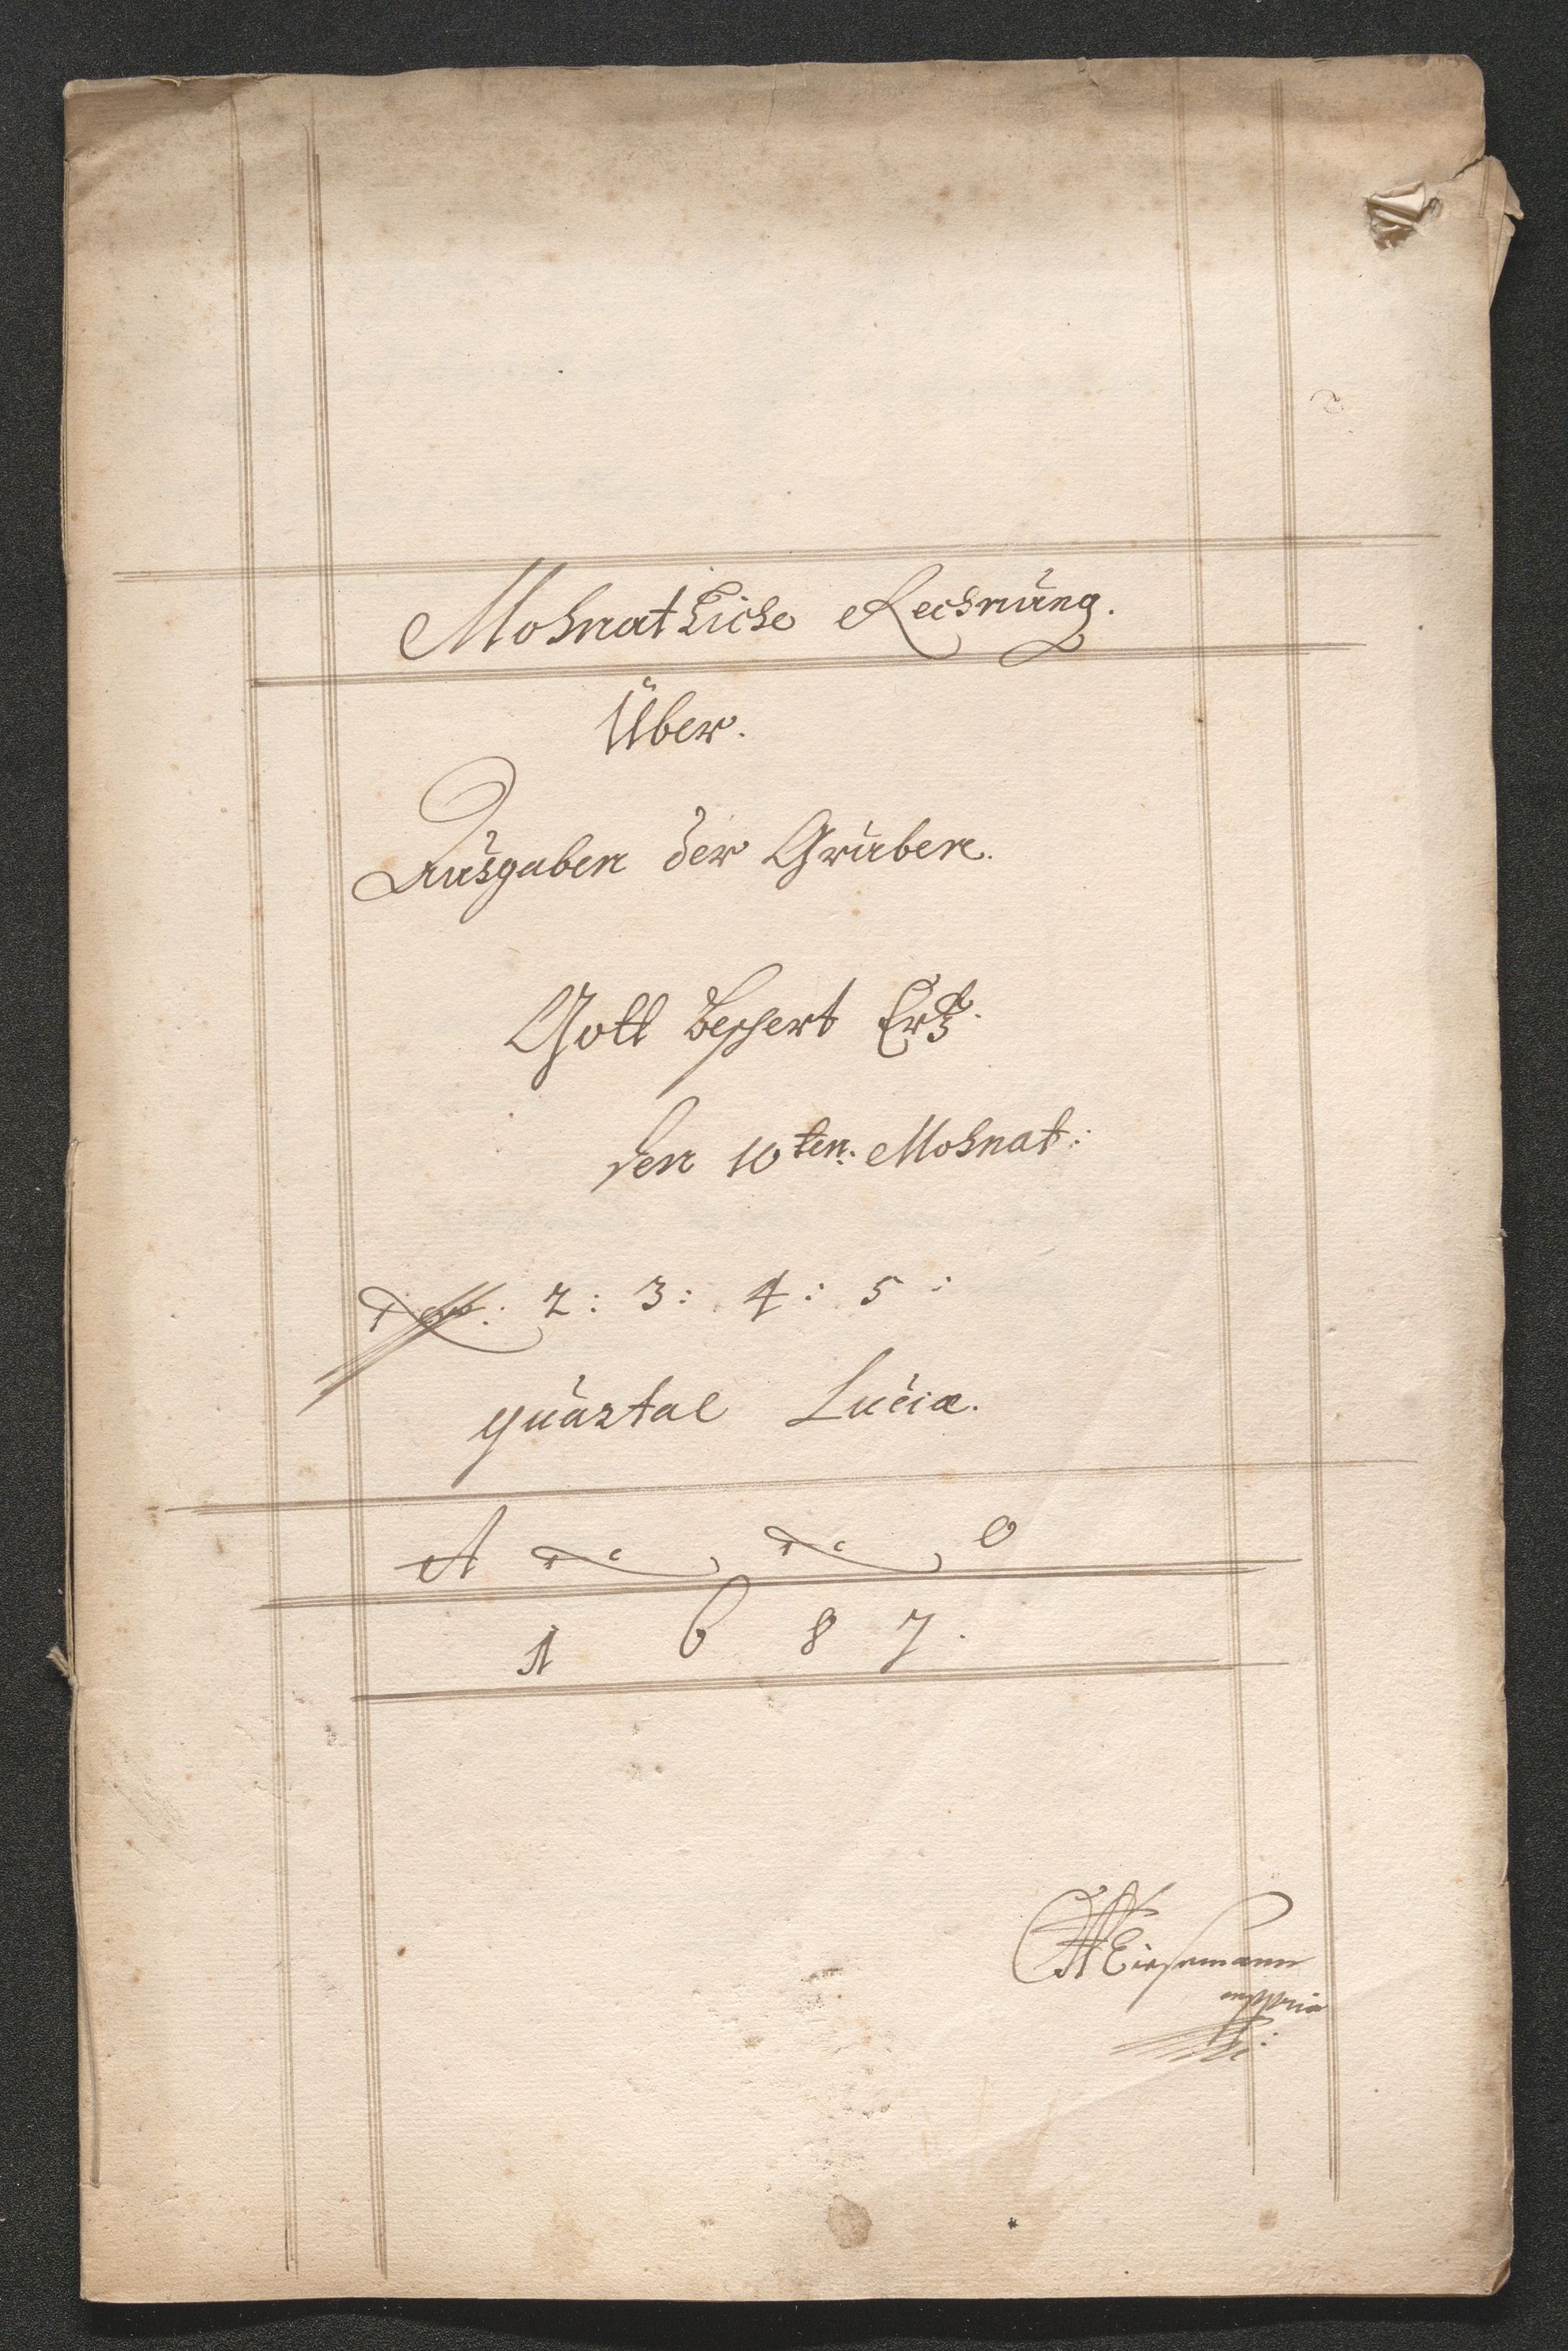 Mohnatliche Rechnung.
Über.
Ausgaben der Gruben.
Gott beschert Ertz.
den 10ten: Mohnat:
2: 3: 4: 5:
quartal Luciæ.
A o
1 6 8 7.
mppria